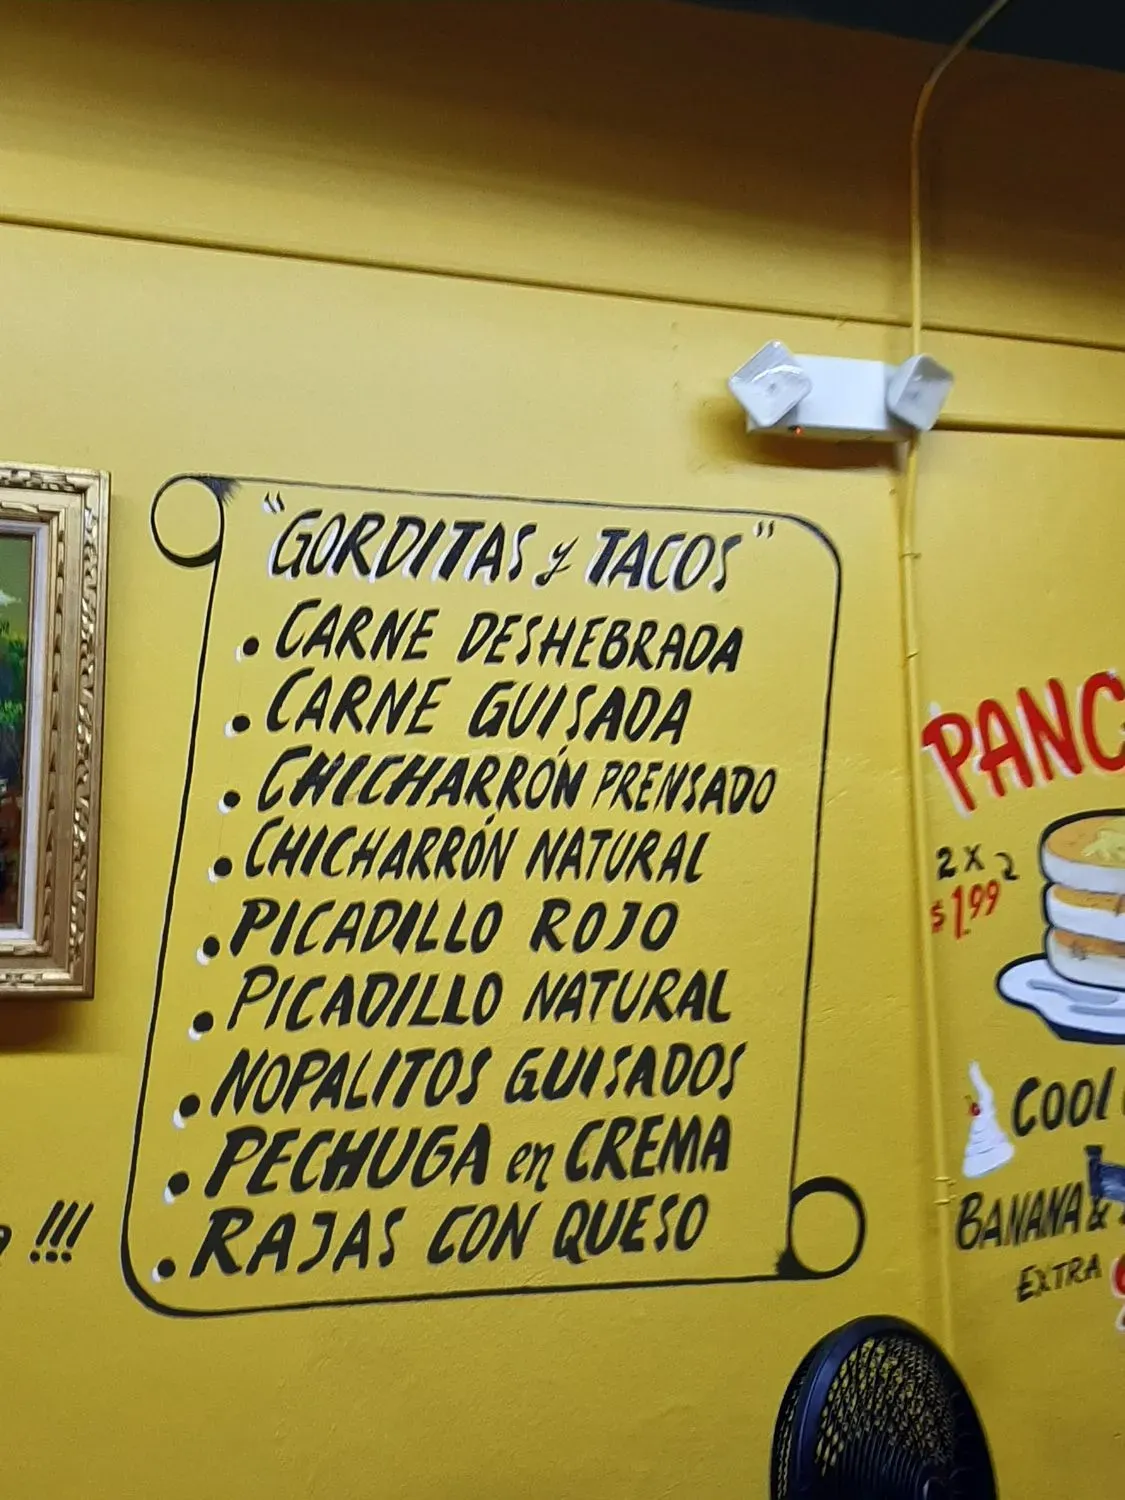 "GORDITAS y TACOS"
• CARNE DESHEBRADA
• CARNE GUISADA
• CHICHARRÓN PRENSADO
• CHICHARRÓN NATURAL
• PICADILLO ROJO
• PICADILLO NATURAL
• NOPALITOS GUISADOS
• PECHUGA en CREMA
• RAJAS CON QUESO
!!!
PANC
2 X 2
$1.99
COOL
BANANA &
EXTRA